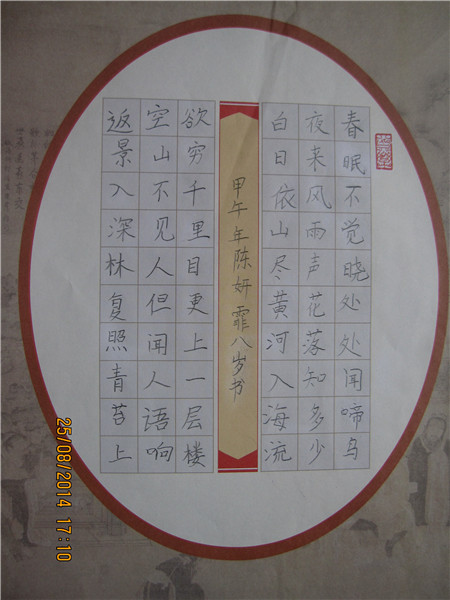 春眠不觉晓处处闻啼鸟
夜来风雨声花落知多少
白日依山尽黄河入海流
甲午年陈妍霏八岁书
欲穷千里目更上一层楼
空山不见人但闻人语响
返景入深林复照青苔上
25/08/2014 17:10